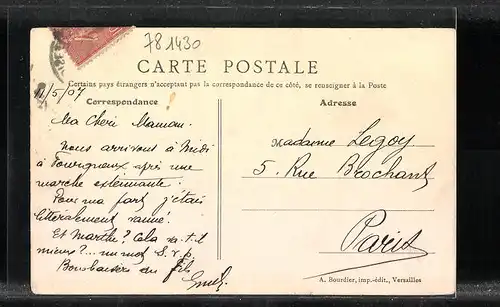 781430
CARTE POSTALE
Certains pays étrangers n'acceptant pas la correspondance de ce côté, se renseigner à la Poste
11/5/07
Correspondance
Adresse
Ma Cheri Maman.
Nous arrivons à Midi
à Fourqueux après une
marche exténuante.
Pour ma part j'étais
littéralement vanné.
Et Marthe? Cela va-t-il
mieux?... un mot S.v.p.
Bons baisers du fils
Madame Legoy
5. Rue Brochant
Paris
A. Bourdier, imp.-édit., Versailles